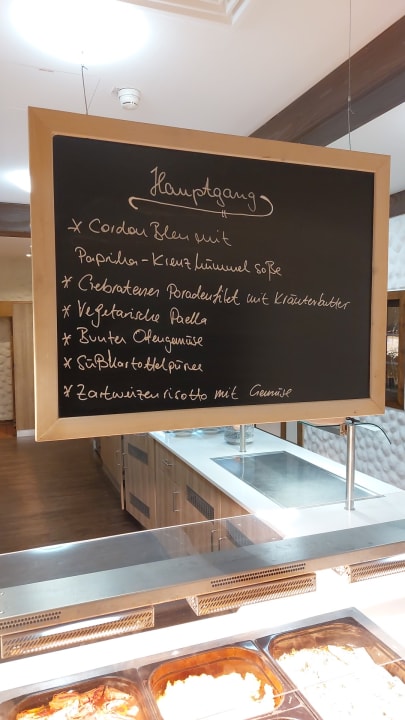 Hauptgang
* Cordon Bleu mit
Paprika-Kreuzkümmel soße
* Gebratener Poradenfilet mit Kräuterbutter
* Vegetarische Paella
* Bunter Ofengemüse
* Süßkartoffelpüree
* Zartweizenrisotto mit Gemüse